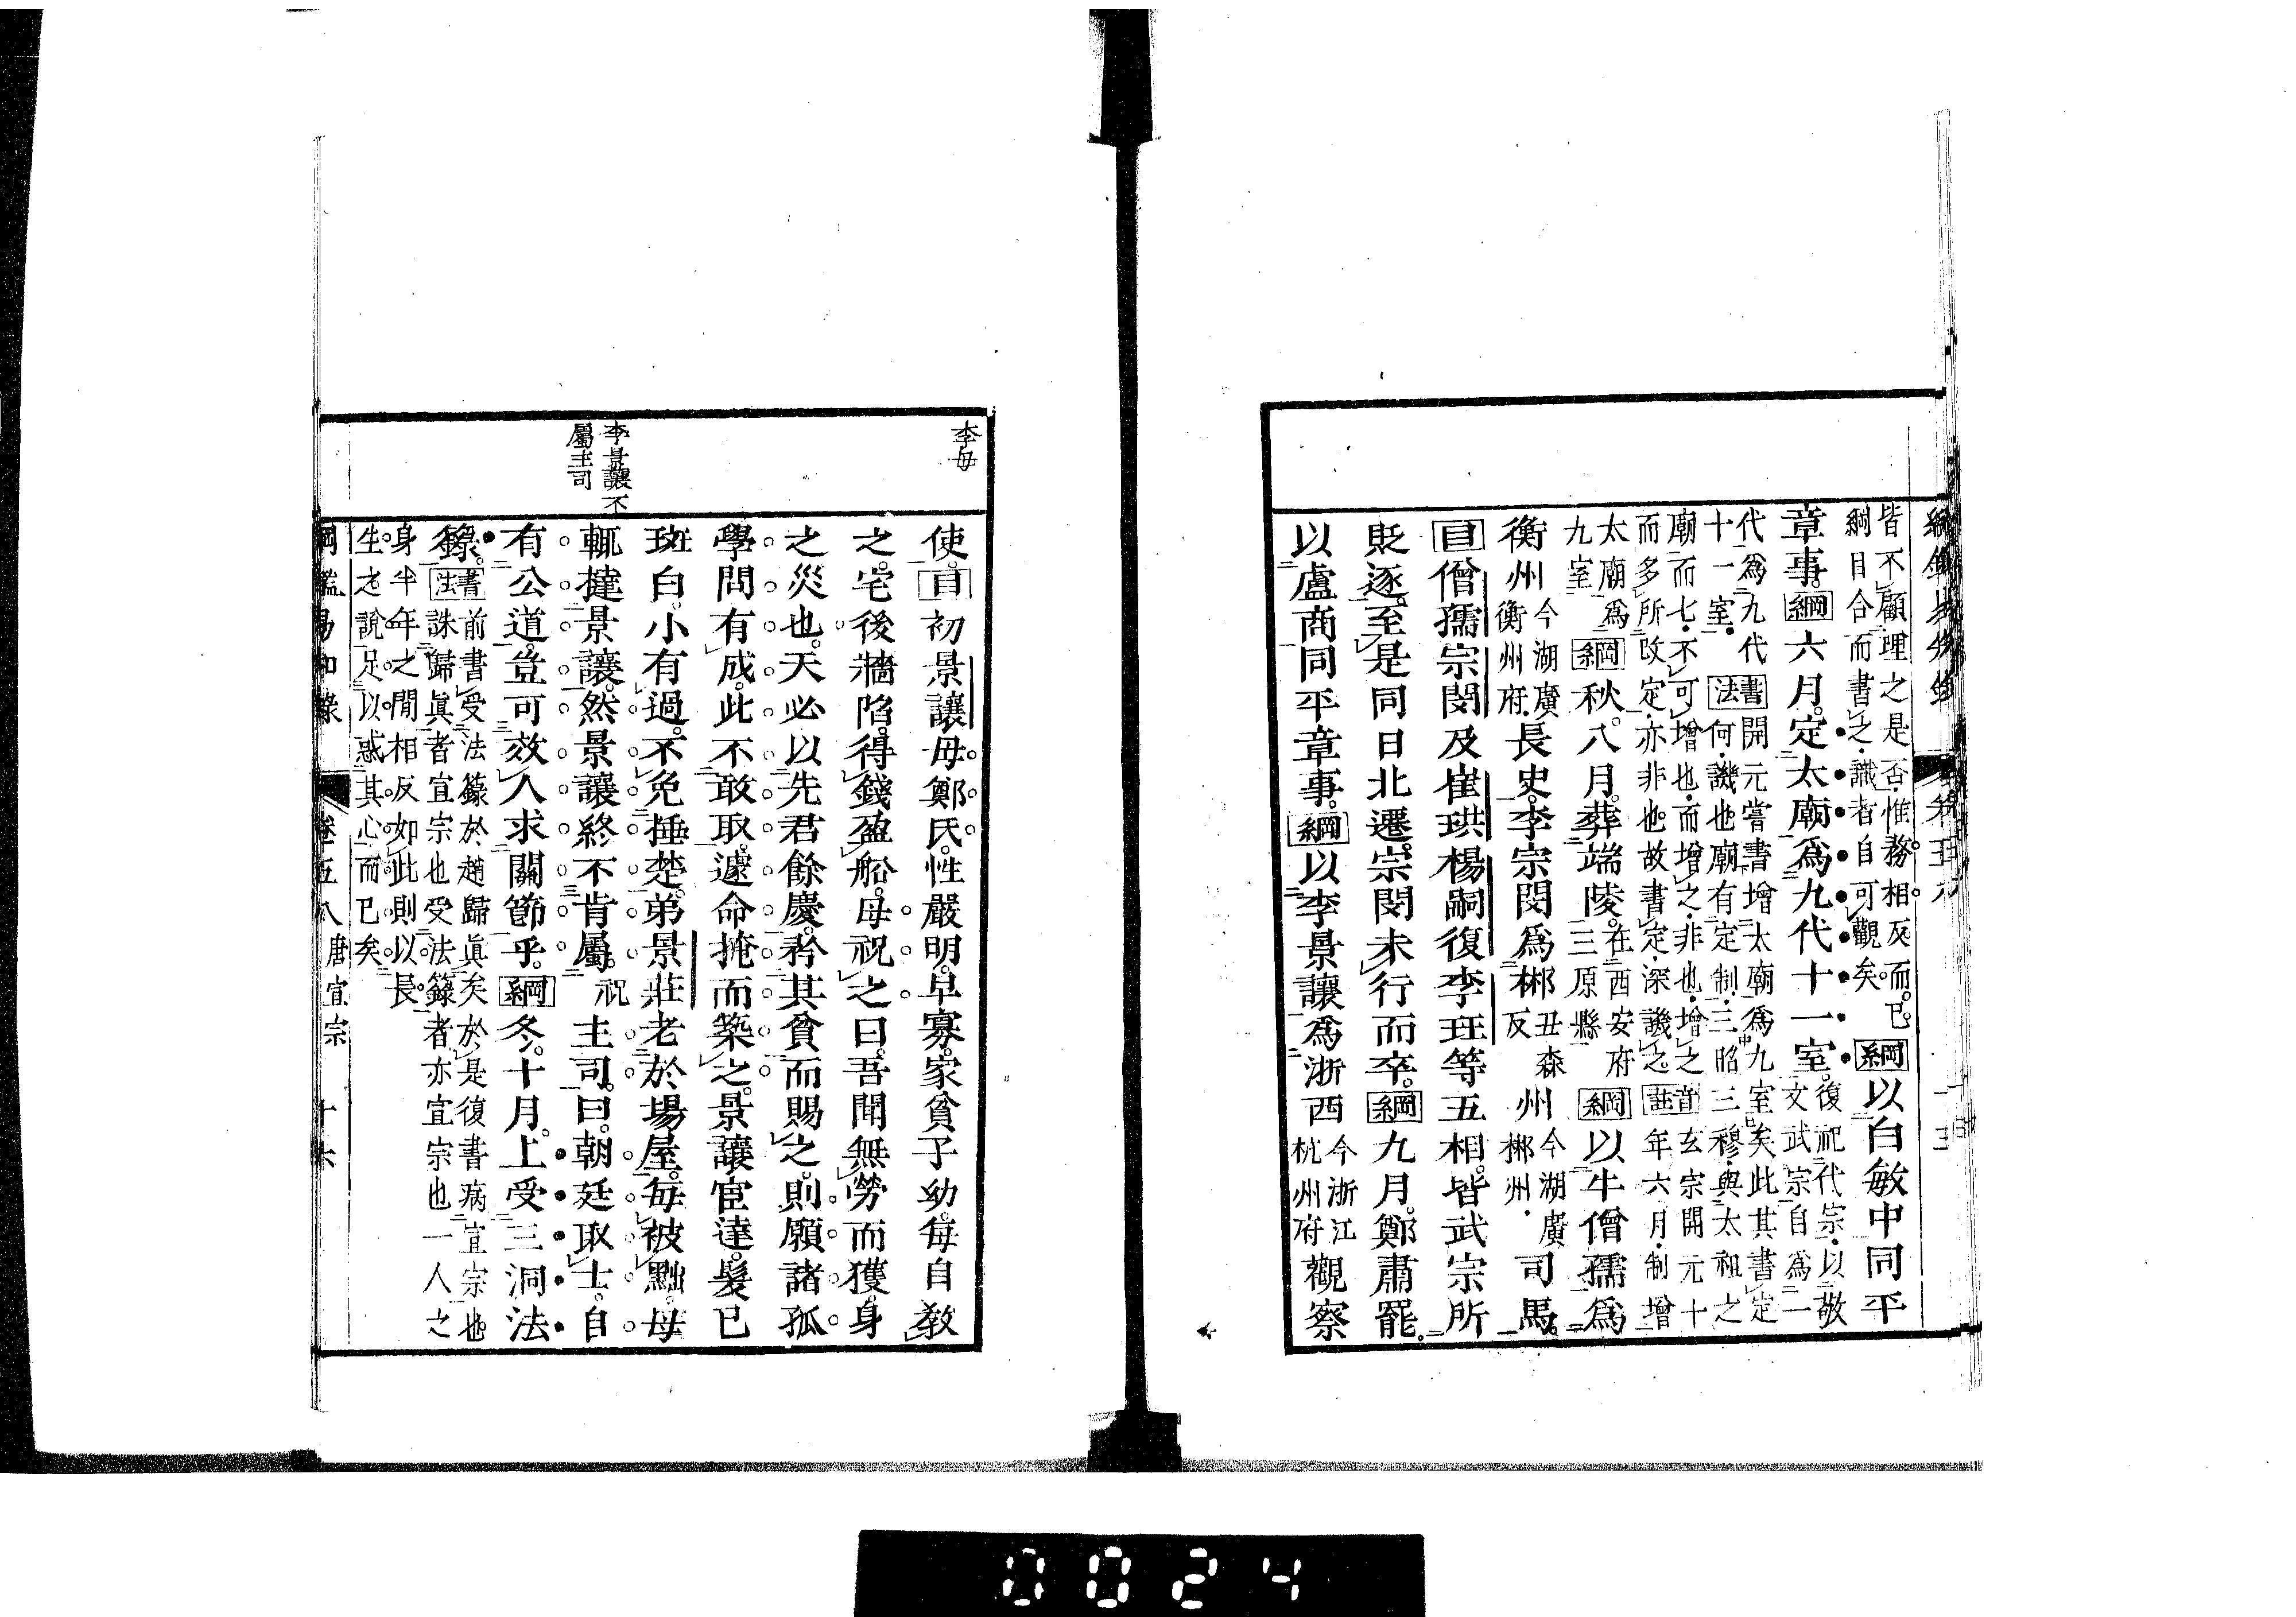 皆不顧理之是否惟務相反而已
綱目合而書之識者自可觀矣
綱以白敏中同平
章事綱六月定太廟爲九代十一室
復祀代宗以敬
文武宗自爲一
代爲九代
十一室
書法開元嘗書增太廟爲九室矣此其書定
何譏也廟有定制三昭三穆與太祖之
廟而七不可增也而增之非也增之
而多所改定亦非也故書定深譏之
音註玄宗開元十
年六月制增
太廟爲
九室
綱秋八月葬端陵
在西安府
三原縣
綱以牛僧孺爲
衡州
今湖廣
衡州府
長史李宗閔爲郴
丑森
反
州
今湖廣
郴州
司馬
目僧孺宗閔及崔珙楊嗣復李珏等五相皆武宗所
貶逐至是同日北遷宗閔未行而卒綱九月鄭肅罷
以盧商同平章事綱以李景讓爲浙西
今浙江
杭州府
觀察
李母
使目初景讓母鄭氏性嚴明早寡家貧子幼每自教
之宅後牆陷得錢盈船母祝之曰吾聞無勞而獲身
之災也天必以先君餘慶矜其貧而賜之則願諸孤
學問有成此不敢取遽命掩而築之景讓宦達髮已
斑白小有過不免捶楚弟景莊老於場屋每被黜母
李景讓不
屬主司
輒撻景讓然景讓終不肯屬
祝
主司曰朝廷取士自
有公道豈可效人求關節乎綱冬十月上受三洞法
籙
書法前書受法籙於趙歸眞矣於是復書病宣宗也
誅歸眞者宣宗也受法籙者亦宣宗也一人之
身半年之間相反如此則以長
生之說足以惑其心而已矣
綱鑑易知錄 卷五八唐宣宗 十六
0024